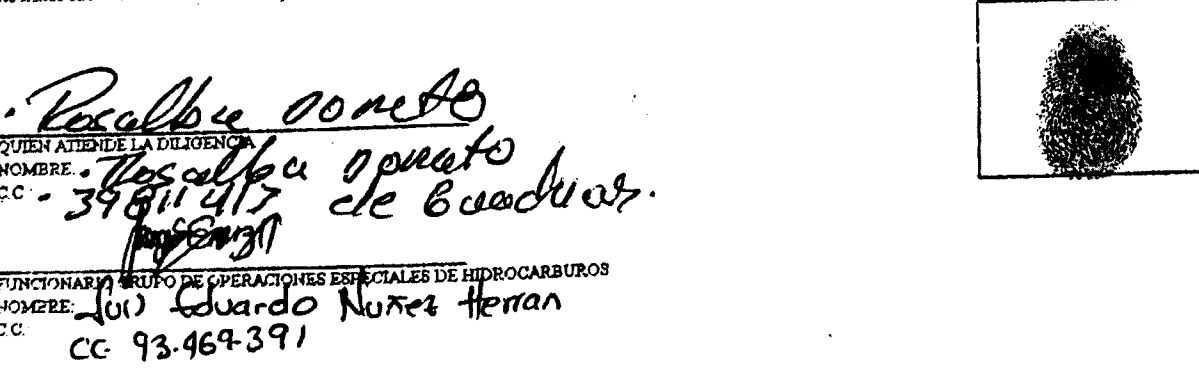 . Rosalba Donato
QUIEN ATIENDE LA DILIGENCIA
NOMBRE. . Rosalba Donato
C.C. . 39811417 de Guaduas.
FUNCIONARIO GRUPO DE OPERACIONES ESPECIALES DE HIDROCARBUROS
NOMBRE: Luis Eduardo Nuñez Herran
C.C.
CC. 93.469.391